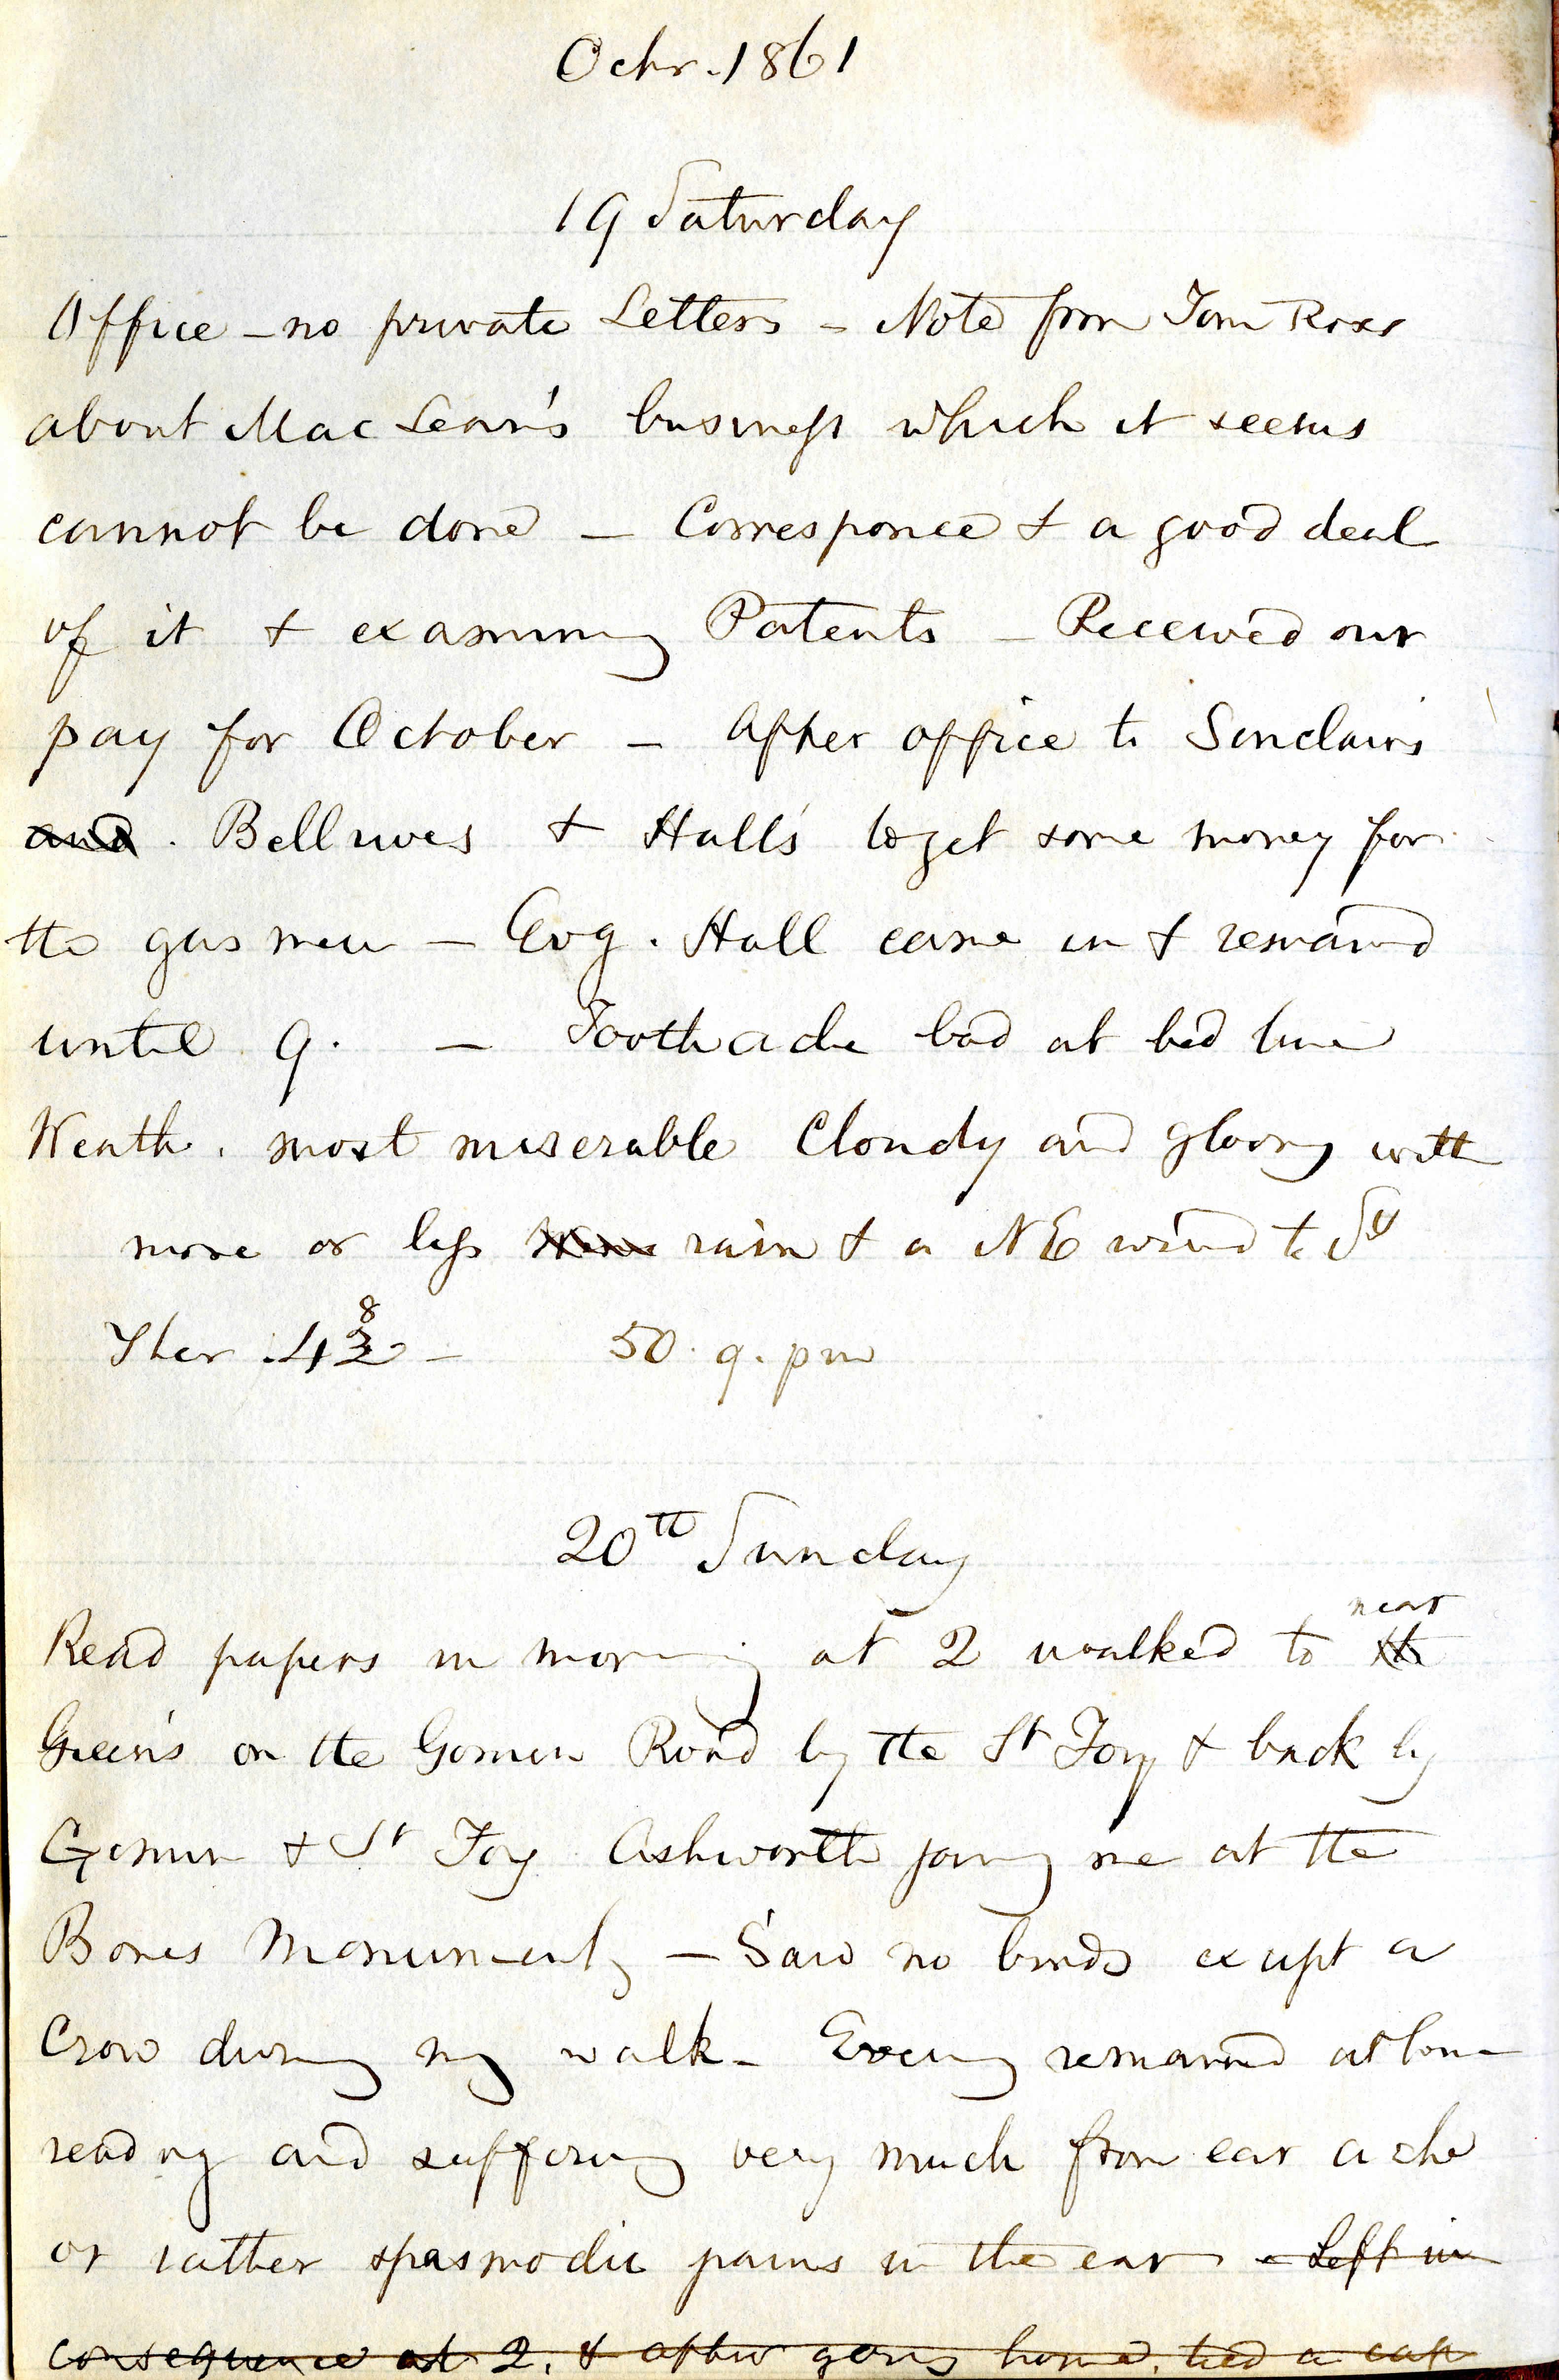 Octr. 1861
19 Saturday
Office – no private Letters – Note from Tom Ross
about MacLean's business which it seems
cannot be done – Corresponce & a good deal
of it & examining Patents – Received our
pay for October – After office to Sinclairs
and . Bellives & Hall's to get some money for
the gas men – Evg. Hall came in & remaind
until 9. – Toothache bad at bed time
Weath. most miserable Cloudy and gloomy with
more or less rain & a NE wind to
Ther . 48 – 50. 9. pm
20th Sunday
Read papers in morning at 2 walked to near the
Green's on the Gomin Road by the St Foy & back by
Gomin & St Foy Ashworth joing me at the
Bones Monument, – Saw no birds except a
Crow during my walk – Evening remained at home
reading and suffering very much from ear ache
or rather spasmodic pains in the ear – Left in
consequence at 2. & after going home, tied a cap